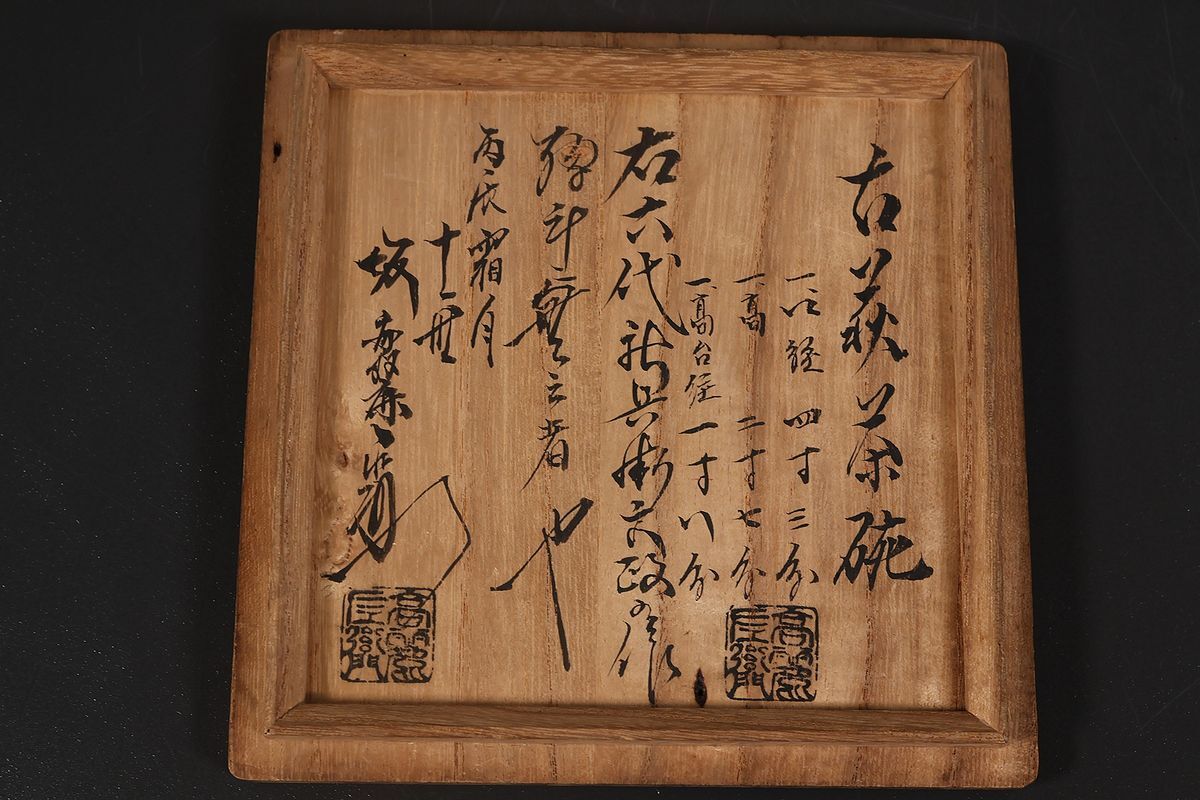 古萩茶碗
一口径 四寸三分
一高 二寸七分
一高台径 一寸八分
右六代新兵衛 作
無之者也
丙辰霜月
十一世
坂
高麗左衛門
高麗左衛門